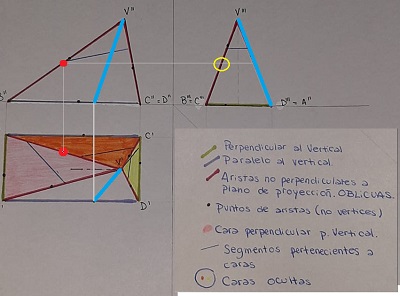 V''
V'''
B''
C''=D''
B'''=C'''
D'''=A'''
C'
V'
D'
Perpendicular al Vertical
Paralelo al vertical.
Aristas no perpendiculates a
plano de proyección. OBLICUAS.
Puntos de aristas (no vertices)
Cara perpendicular p. Vertical.
Segmentos pertenecientes a
caras
Caras ocultas